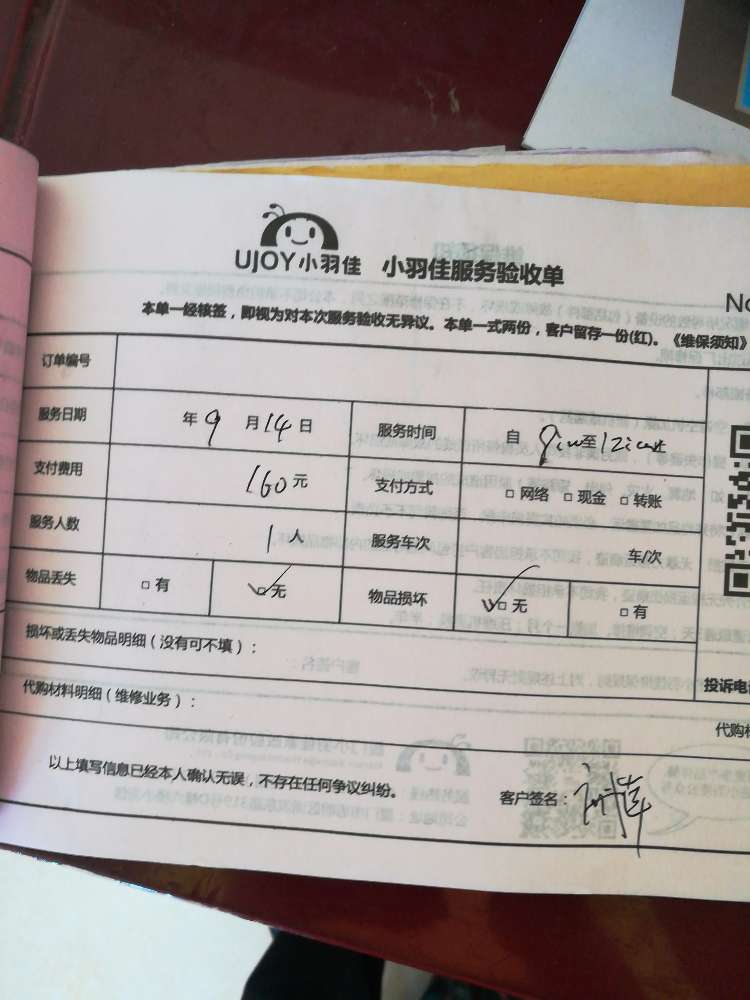 UJOY小羽佳 小羽佳服务验收单
No
本单一经核签，即视为对本次服务验收无异议。本单一式两份，客户留存一份(红)。《维保须知》
订单编号
服务日期 年 9 月 14 日 服务时间 自 9:00 至 12:00
支付费用 160 元 支付方式 □ 网络 □ 现金 □ 转账
服务人数 1 人 服务车次 车/次
物品丢失 □ 有 □ 无 物品损坏 □ 无 □ 有
损坏或丢失物品明细（没有可不填）：
投诉电
代购材料明细（维修业务）：
代购材
以上填写信息已经本人确认无误，不存在任何争议纠纷。 客户签名：